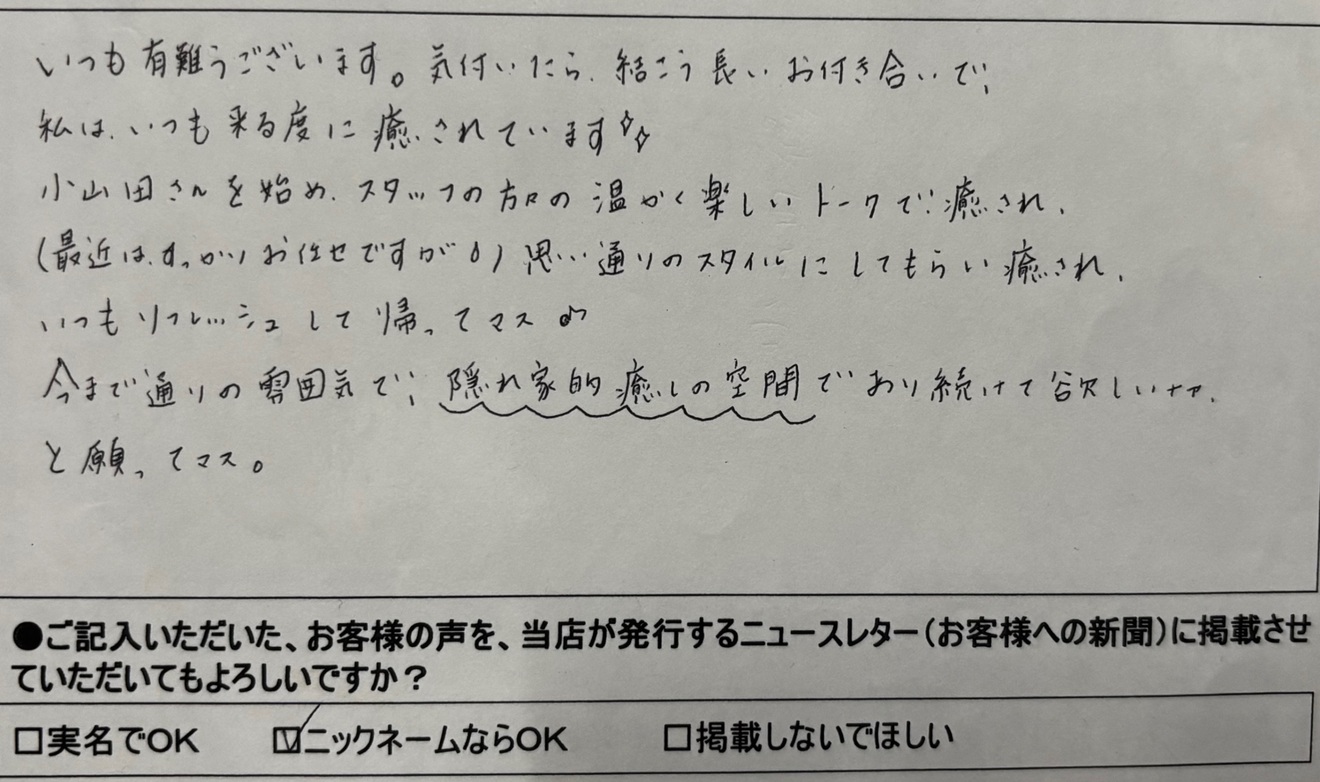 いつも有難うございます。気付いたら、結こう長いお付き合いで、
私は、いつも来る度に癒されています✧✧
小山田さんを始め、スタッフの方々の温かく楽しいトークで癒され、
(最近は、すっかりお任せですが)思い通りのスタイルにしてもらい癒され、
いつもリフレッシュして帰ってマス♪
今まで通りの雰囲気で、隠れ家的癒しの空間であり続けて欲しいナァ、
と願ってマス。
●ご記入いただいた、お客様の声を、当店が発行するニュースレター(お客様への新聞)に掲載させ
ていただいてもよろしいですか?
□実名でOK ☑ニックネームならOK □掲載しないでほしい